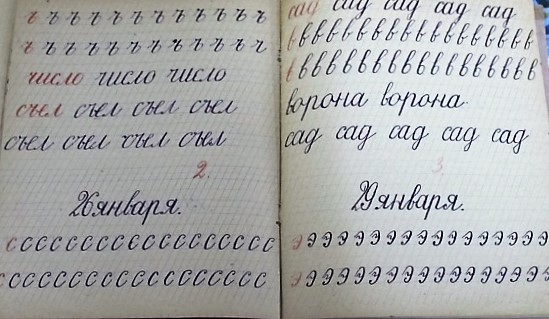 ъ ъ ъ ъ ъ ъ ъ ъ ъ ъ ъ ъ ъ
ъ ъ ъ ъ ъ ъ ъ ъ ъ ъ ъ ъ ъ
число число число
съел съел съел съел
съел съел съел съел
2.
26 января.
с с с с с с с с с с с с с с с с с с
с с с с с с с с с с с с с с с с с с
сад сад сад сад сад
в в в в в в в в в в в в в в в в в
в в в в в в в в в в в в в в в в в
ворона ворона.
сад сад сад сад сад
3.
29 января.
э э э э э э э э э э э э э э э э э
э э э э э э э э э э э э э э э э э